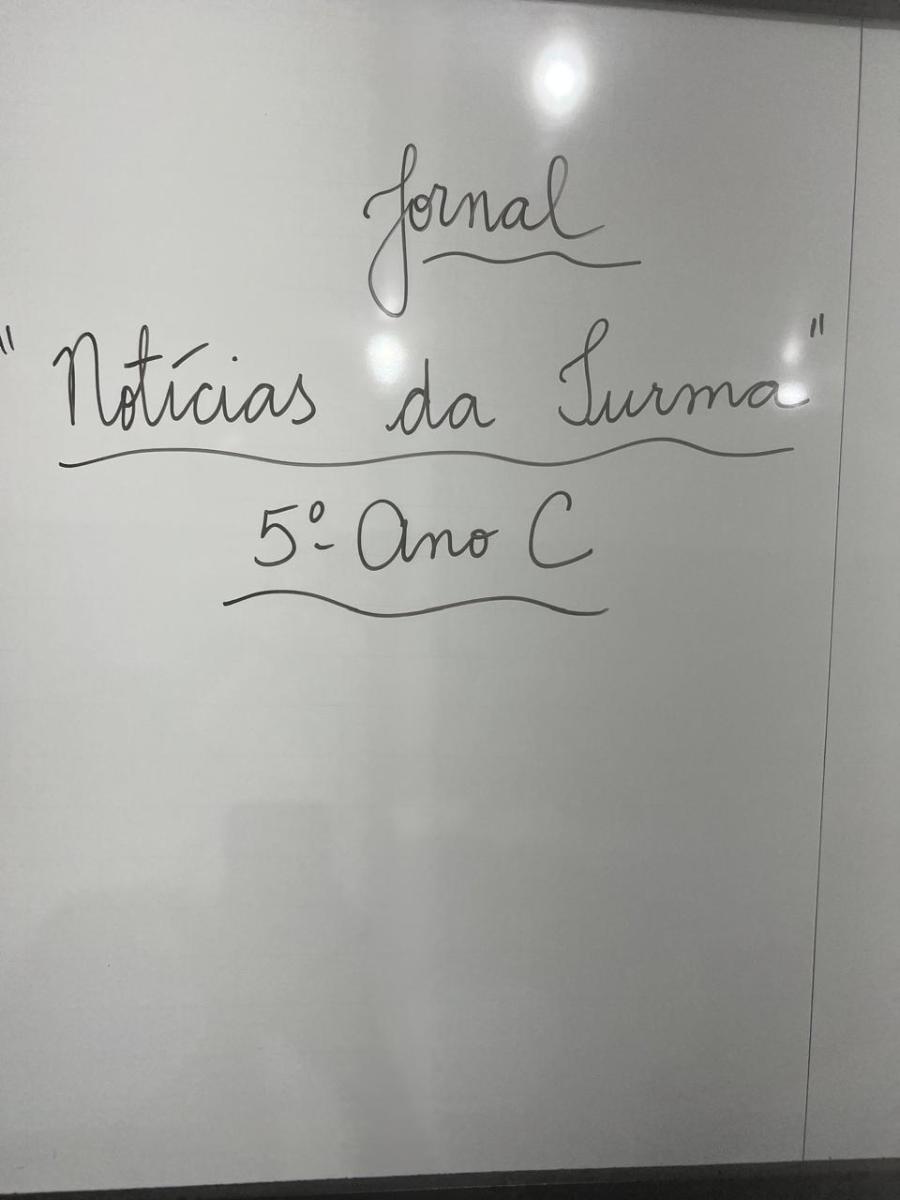 Jornal
"Notícias da Turma"
5º Ano C